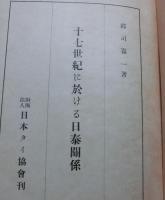 郡司喜一著
十七世紀に於ける日泰關係
財團法人 日本タイ協會刊